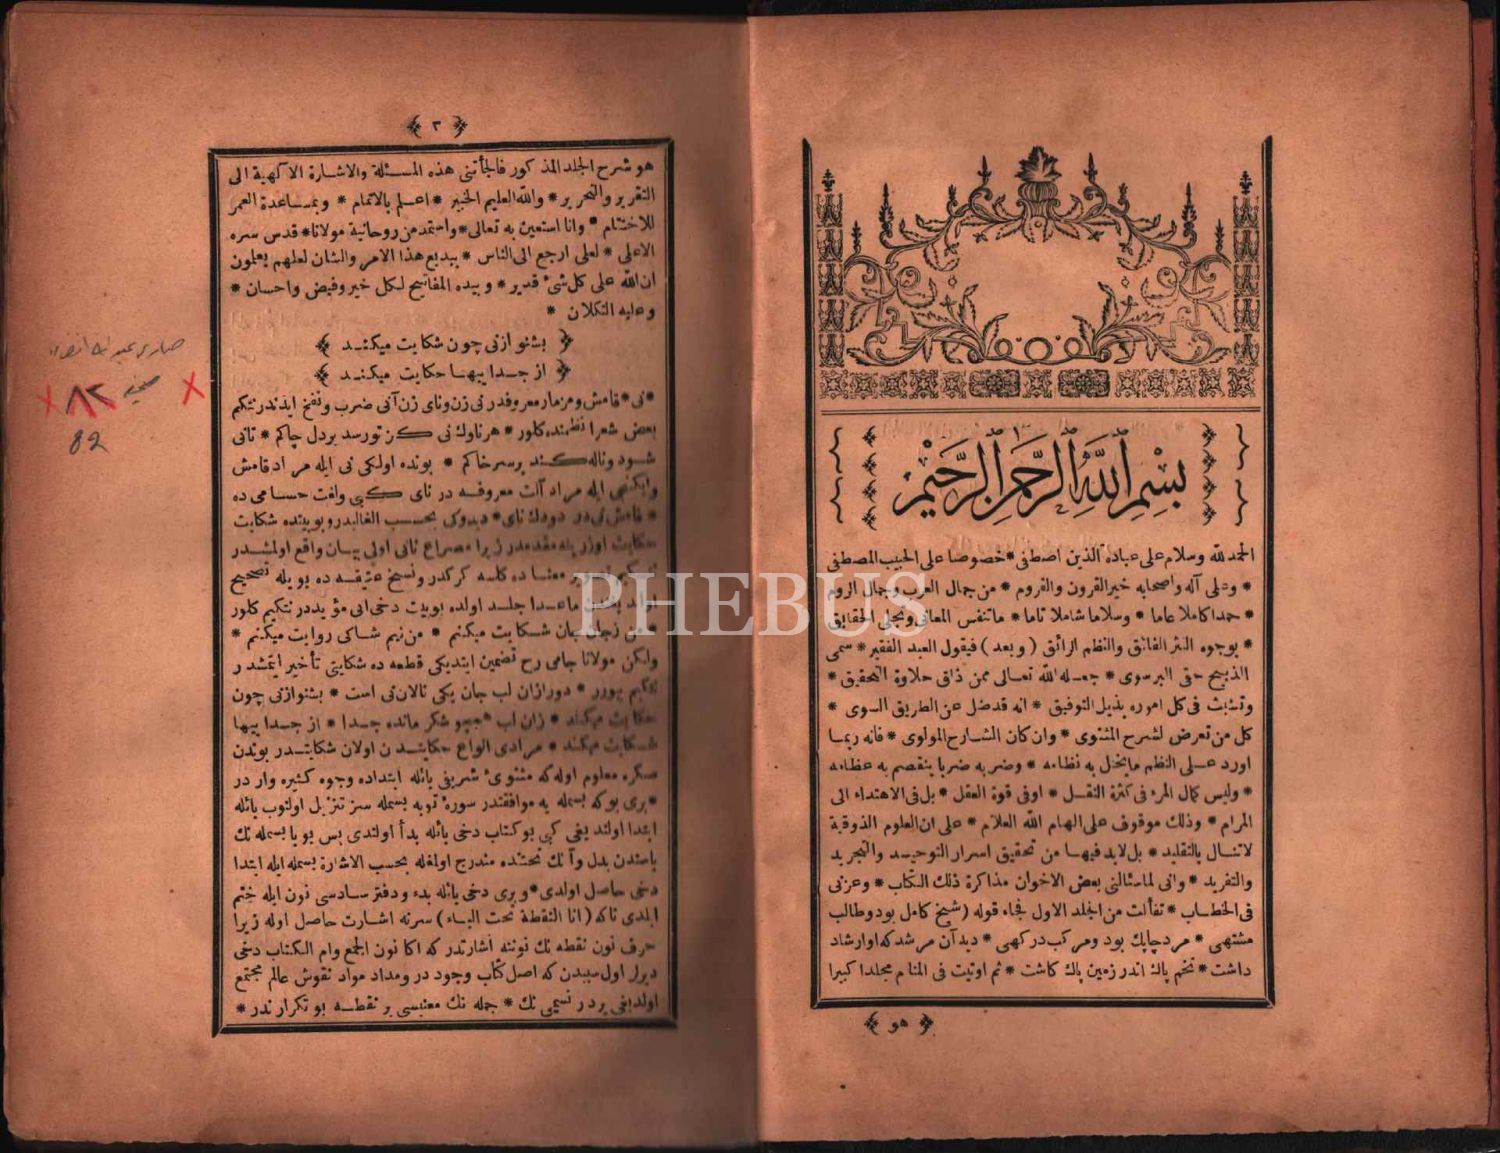 بسم الله الرحمن الرحيم
الحمد لله وسلام على عباده الذين اصطفى * خصوصا على الحبيب المصطفى
* وعلى آله واصحابه خير القرون والقروم * من جمال العرب وجمال الروم
* حمدا كاملا عاما * وسلاما شاملا تاما * ماتنفس المعانى وتجلى الحقايق
* بوجوه النثر الفائق والنظم الرائق (وبعد) فيقول العبد الفقير * سمى
الذبيح حقى البرسوى * جعله الله تعالى ممن ذاق حلاوة التحقيق *
وتشبث فى كل اموره بذيل التوفيق * انه قد ضل عن الطريق السوى *
كل من تعرض لشرح المثنوى * وان كان الشارح المولوى * فانه ربما
اورد على النظم مايخل به نظامه * وضربه ضربا ينقصم به عظامه
* وليس كمال المرء فى كثرة النقل * اوفى قوة العقل * بل فى الاهتداء الى
المرام * وذلك موقوف على الهام الله العلام * على ان العلوم الذوقية
لاتنال بالتقليد * بل لابد فيها من تحقيق اسرار التوحيد والتجريد
والتفريد * وانى لما سئالنى بعض الاخوان مذاكرة ذلك الكتاب * وعزنى
فى الخطاب * تفألت من الجلد الاول فجاء قوله (شيخ كامل بود وطالب
مشتهى * مرد چابك بود ومركب دركهى * ديد آن مرشد كه او ارشاد
داشت * تخم پاك اندر زمين پاك كاشت * ثم اوتيت فى المنام مجلدا كبيرا
هو
٣
هو شرح الجلد المذكور فالجأتنى هذه المسئلة والاشارة الالهية الى
التقرير والتحرير * والله العليم الخبير * اعلم بالاتمام * وبمساعدة العمر
للاختتام * وانا استعين به تعالى * واستمد من روحانية مولانا * قدس سره
الاعلى * لعلى ارجع الى الناس * ببديع هذا الامر والشان لعلهم يعلمون
ان الله على كل شئ قدير * وبيده المفاتيح لكل خير وفيض واحسان *
وعليه التكلان *
بشنو ازنى چون شكايت ميكند
از جداييها حكايت ميكند
* نى * قامش ومزمار معروفدر نى زن وناى زن آنى ضرب ونفخ ايدندر نتكم
بعض شعرا نظمنده كلور * هرناوك نى كز تو رسد بردل چاكم * تانى
شود وناله كند برسر خاكم * بونده اولكى نى ايله مراد قامش
وايكنجى ايله مراد آلت معروفه در ناى كبى ولغت حسامى ده
* قامش نى در دودك ناى * ديدوكى بحسب الغالبدر وبوبيتده شكايت
حكايت اوزرينه مقدمدر زيرا مصراع ثانى اولى بيان واقع اولمشدر
معناده كلسه كركدر ونسخ عتيقه ده بويله تصحيح
ماعدا جلد اولده بو بيت دخى انى مؤيددر نتكيم كلور
* من زجان جان شكايت ميكنم * من نيم شاكى روايت ميكنم *
ولكن مولانا جامى رح تضمين ايتديكى قطعه ده شكايتى تأخير ايتمشدر
نتكيم بيورر * دور ازان لب جان يكى نالان نى است * بشنو ازنى چون
حكايت ميكند * زان لب همچو شكر مانده جدا * از جداييها
شكايت ميكند * مرادى انواع حكايتدن اولان شكايتدر بوندن
صكره معلوم اوله كه مثنوئ شريفى يائله ابتداده وجوه كثيره وار در
* برى بوكه بسمله يه موافقتدر سورۀ توبه بسمله سز تنزيل اولنوب يائله
ابتدا اولنديغى كبى بو كتاب دخى يائله بدأ اولندى بس بويا بسمله نك
ياسندن بدل وآنك تحتنده مندرج اولمغله بحسب الاشارة بسمله ايله ابتدا
دخى حاصل اولدى * وبرى دخى يائله بدء ودفتر سادسى نون ايله ختم
ايلدى تاكه (انا النقطة تحت الباء) سرنه اشارت حاصل اوله زيرا
حرف نون نقطه نك نوننه اشارتدر كه اكا نون الجمع وام الكتاب دخى
ديرلر اول سببدن كه اصل كتاب وجود در ومداد مواد نقوش عالم مجتمع
اولديغى يردر نسيمى نك * جمله نك معنيسى بر نقطه بو تكرارندر *
82
PHEBUS